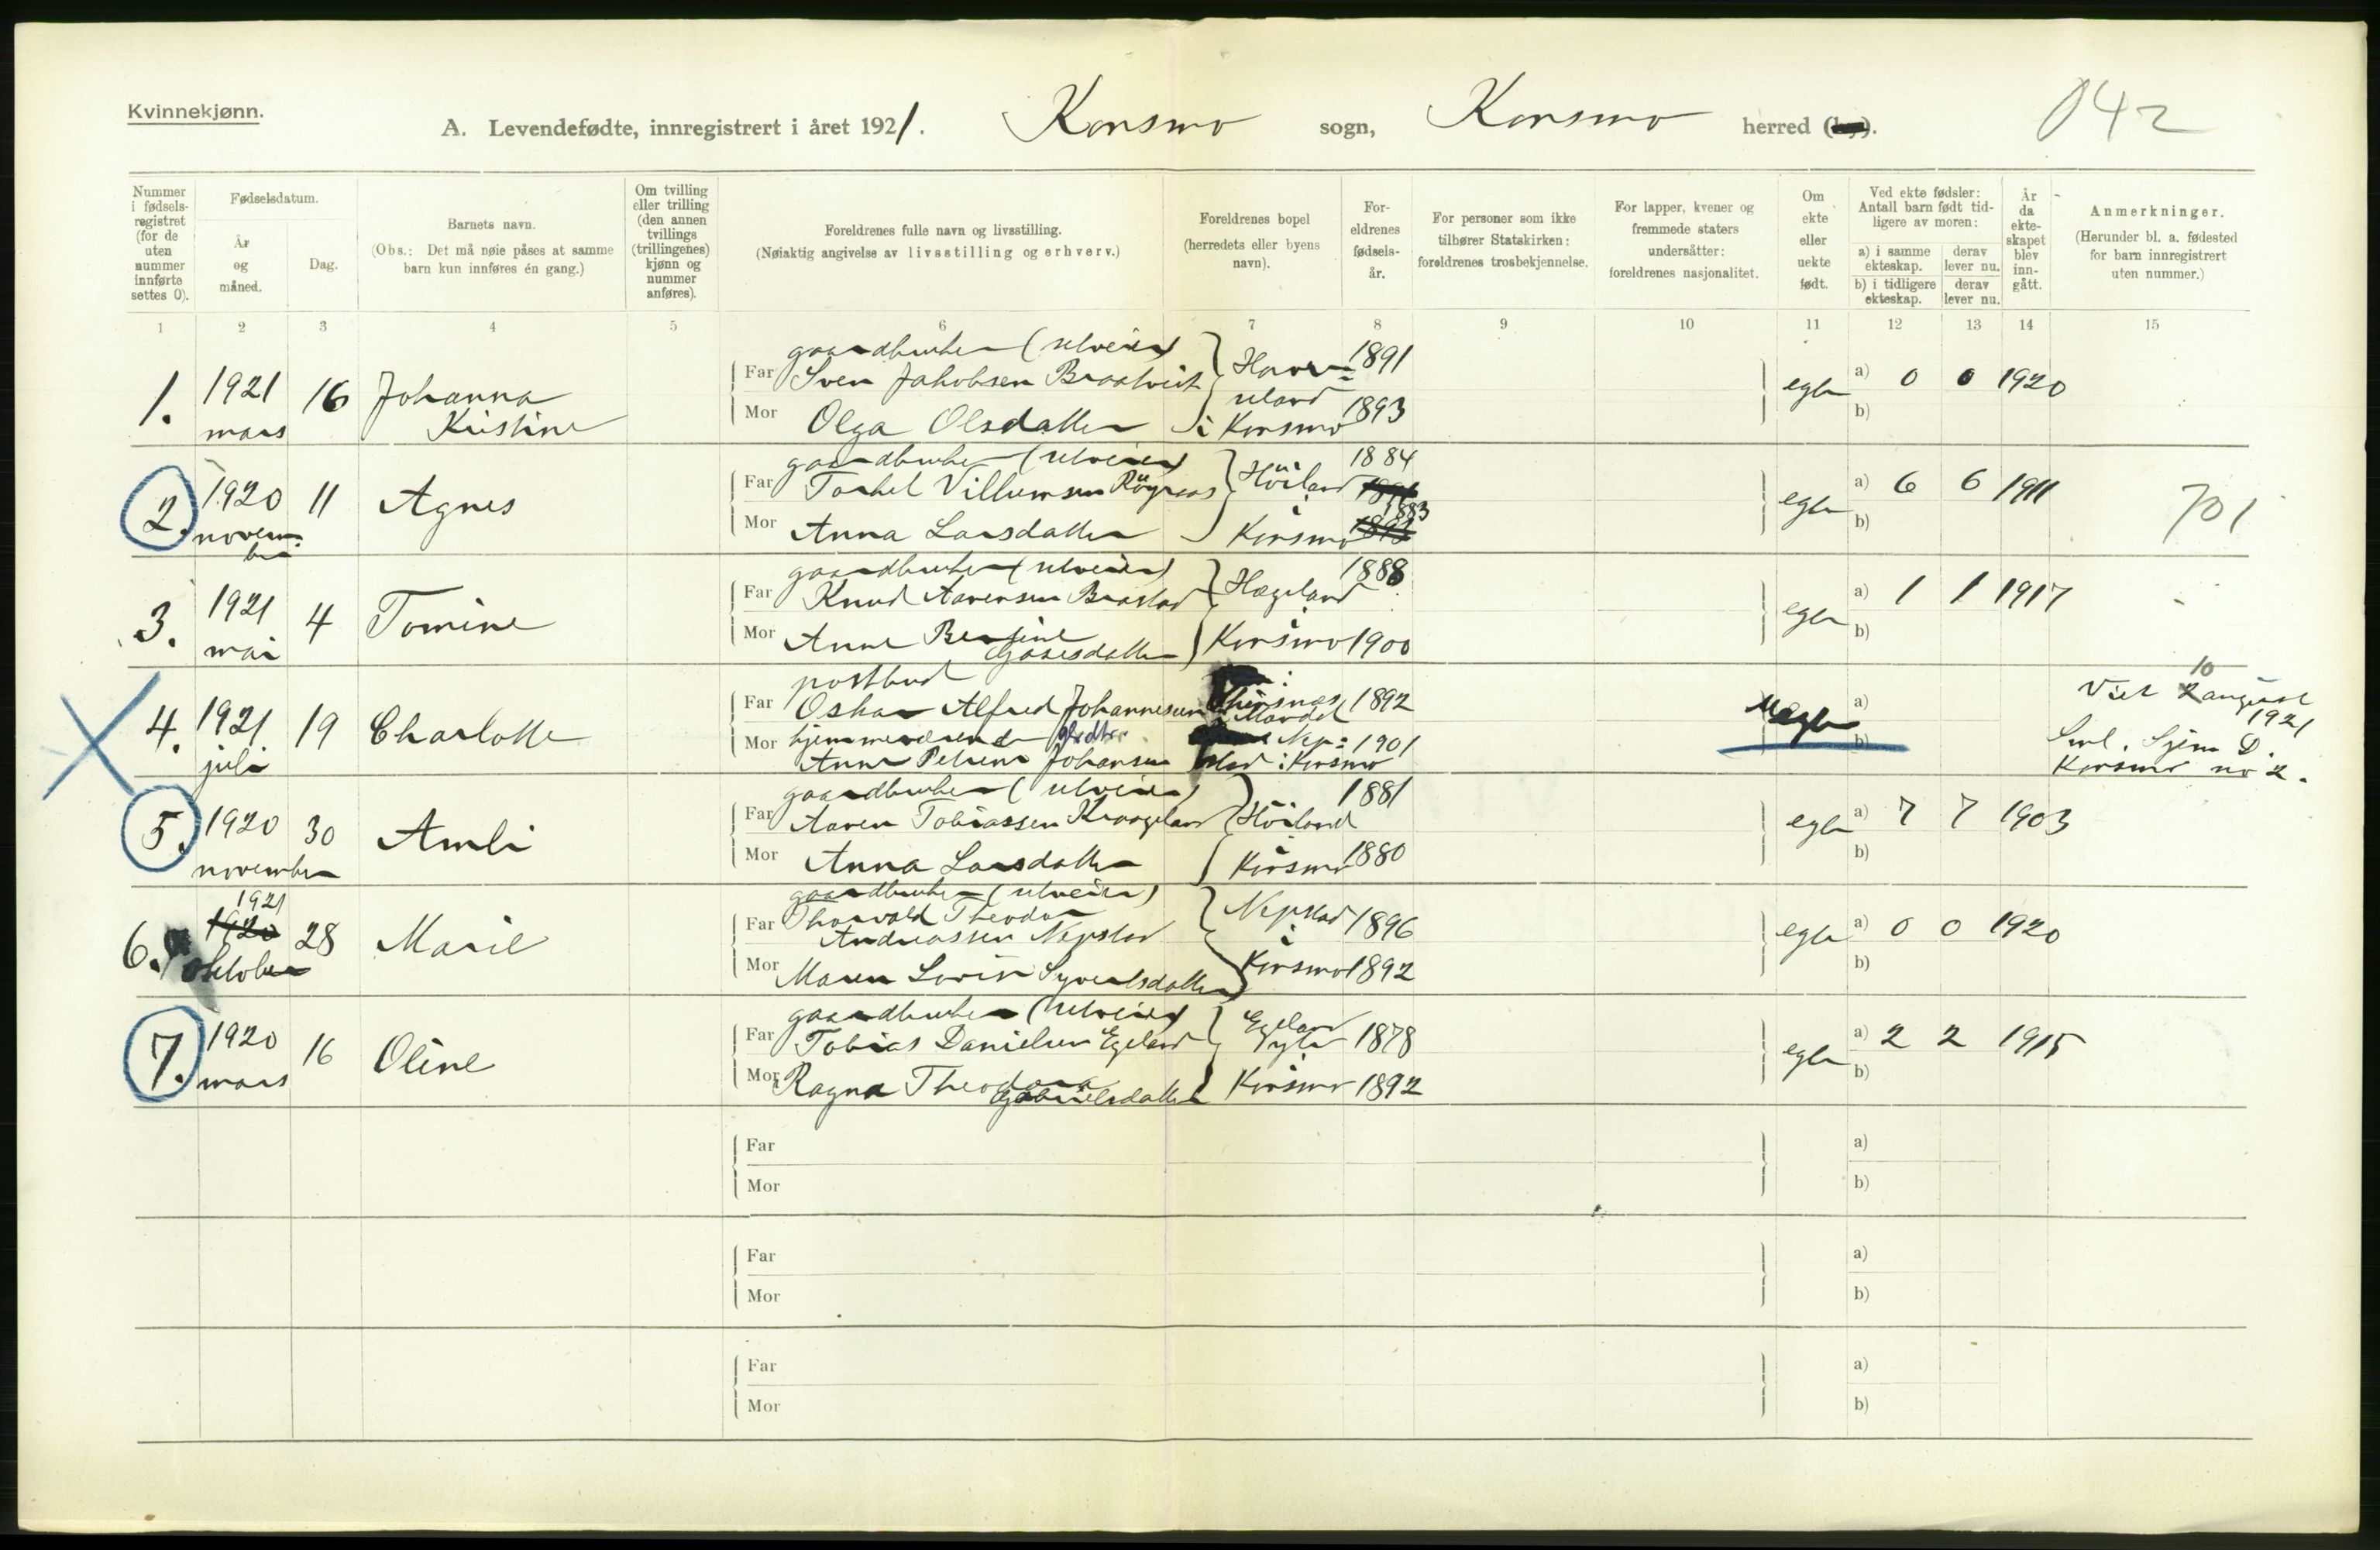 Kvinnekjønn.
A. Levendefødte, innregistrert i året 1921. Konsmo sogn, Konsmo herred (by). 042
Nummer i fødselsregistret (for de uten nummer innførte settes 0).
Fødselsdatum.
År og måned.
Dag.
Barnets navn.
(Obs.: Det må nøie påses at samme barn kun innføres én gang.)
Om tvilling eller trilling (den annen tvillings (trillingenes) kjønn og nummer anføres).
Foreldrenes fulle navn og livsstilling.
(Nøiaktig angivelse av livsstilling og erhverv.)
Foreldrenes bopel (herredets eller byens navn).
Foreldrenes fødselsår.
For personer som ikke tilhører Statskirken: foreldrenes trosbekjennelse.
For lapper, kvener og fremmede staters undersåtter: foreldrenes nasjonalitet.
Om ekte eller uekte født.
Ved ekte fødsler: Antall barn født tidligere av moren:
a) i samme ekteskap. derav lever nu.
b) i tidligere ekteskap. derav lever nu.
År da ekteskapet blev inngått.
Anmerkninger.
(Herunder bl. a. fødested for barn innregistrert uten nummer.)
1 2 3 4 5 6 7 8 9 10 11 12 13 14 15
gaardbruker (selveier)
1. 1921 mars 16 Johanna Kristine
Far Sven Jakobsen Braatveit 1891
Mor Olga Olsdatter i Konsmo 1893
egte a) 0 0 1920
b)
gaardbruker (selveier)
2. 1920 november 11 Agnes
Far Torkel Villumsen Höiland 1884
Mor Anna Larsdatter i Konsmo 1883
egte a) 6 6 1911 701
b)
gaardbruker (selveier)
3. 1921 mai 4 Tomine
Far Knud Aanensen Hægeland 1888
Mor Anne Bertine i Konsmo 1900
egte a) 1 1 1917
b)
postbud
4. 1921 juli 19 Charlotte
Far Oskar Alfred Johannesen Mandal 1892
Mor hjemmeværende
Anne Petrine Johansen i Konsmo 1901
uegte a)
b)
10 august 1921
Konsmo no 2.
gaardbruker (selveier)
5. 1920 november 30 Amli
Far Aanen Tobiassen Höiland 1881
Mor Anna Larsdatter i Konsmo 1880
egte a) 7 7 1903
b)
gaardbruker (selveier)
6. 1921 1920 oktober 28 Marie
Far Thorvald Theodor Andreassen Nepstad Nepstad 1896
Mor Maren Lovise Syvertsdatter i Konsmo 1892
egte a) 0 0 1920
b)
gaardbruker (selveier)
7. 1920 mars 16 Oline
Far Tobias Danielsen Egeland Egeland 1878
Mor Ragna Theodora Gabrielsdatter i Konsmo 1892
egte a) 2 2 1915
b)
Far a)
Mor b)
Far a)
Mor b)
Far a)
Mor b)